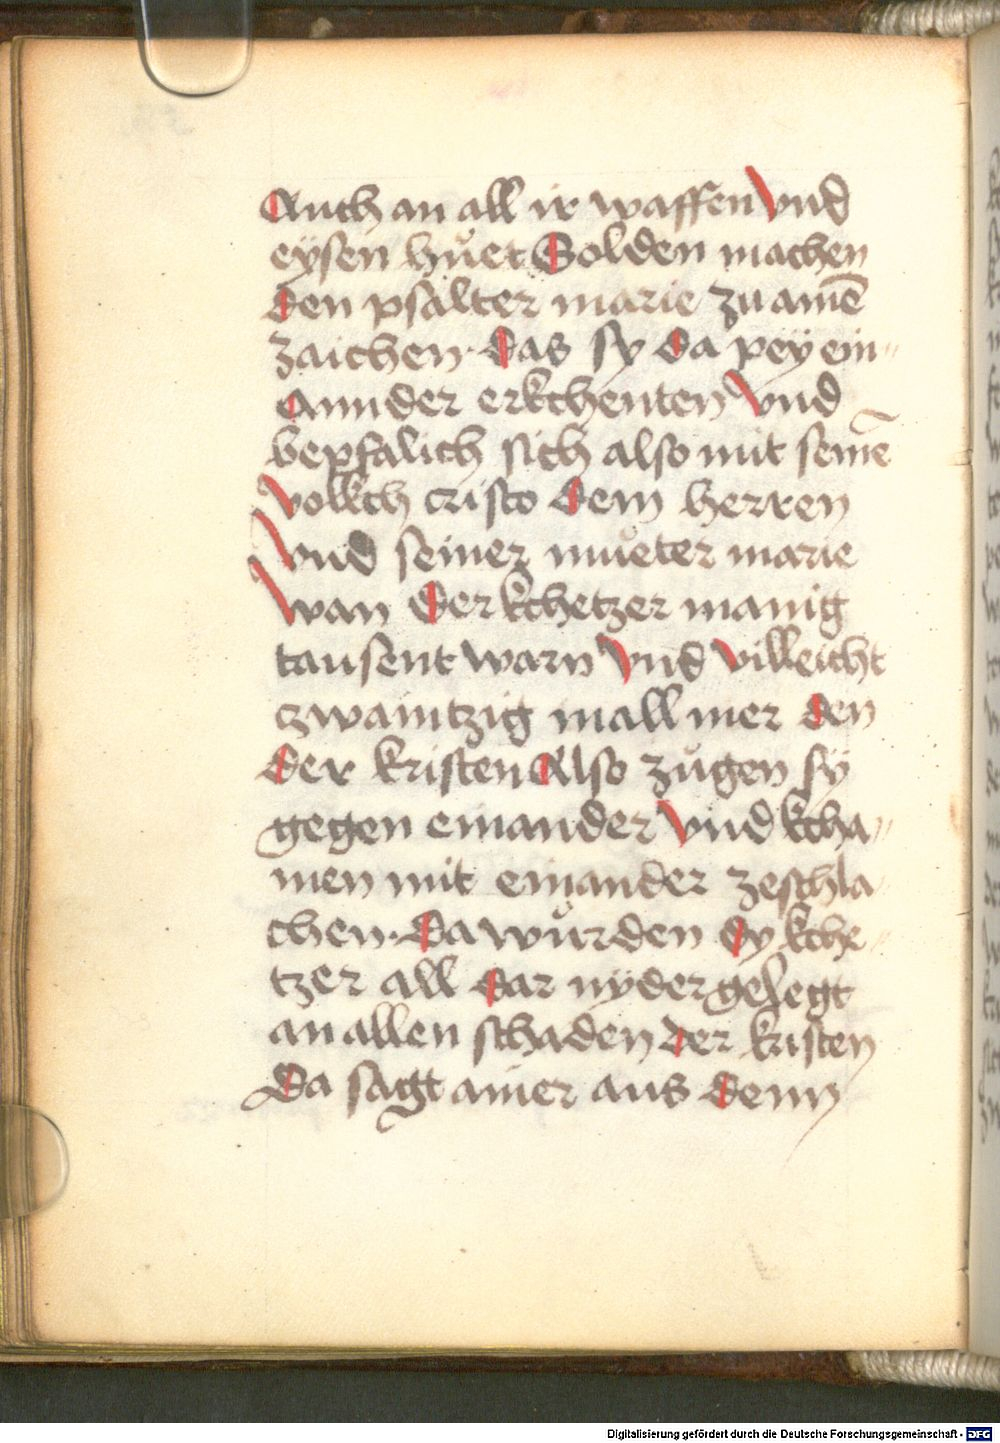 Auch an all ir waffen vnd
eysen hůet Solden machen
den psalter marie zu ainē
zaichen · das sy da pey ein⸗
annder erkchenten vnd
bepfalich sich also mit seinē
volkch cristo dem herren
vnd seiner můeter marie
wan der kchetzer manig
tausent warn vnd villeicht
czwaintzig mall mer den
der kristen Also zůgen sÿ
gegen einander vnd kcha⸗
men mit einander zeschla⸗
chen · da wůrden dy kche⸗
tzer all dar nyder gelegt
an allen schaden der kristen
Da sagt ainer aus denn
Digitalisierung gefördert durch die Deutsche Forschungsgemeinschaft - DFG